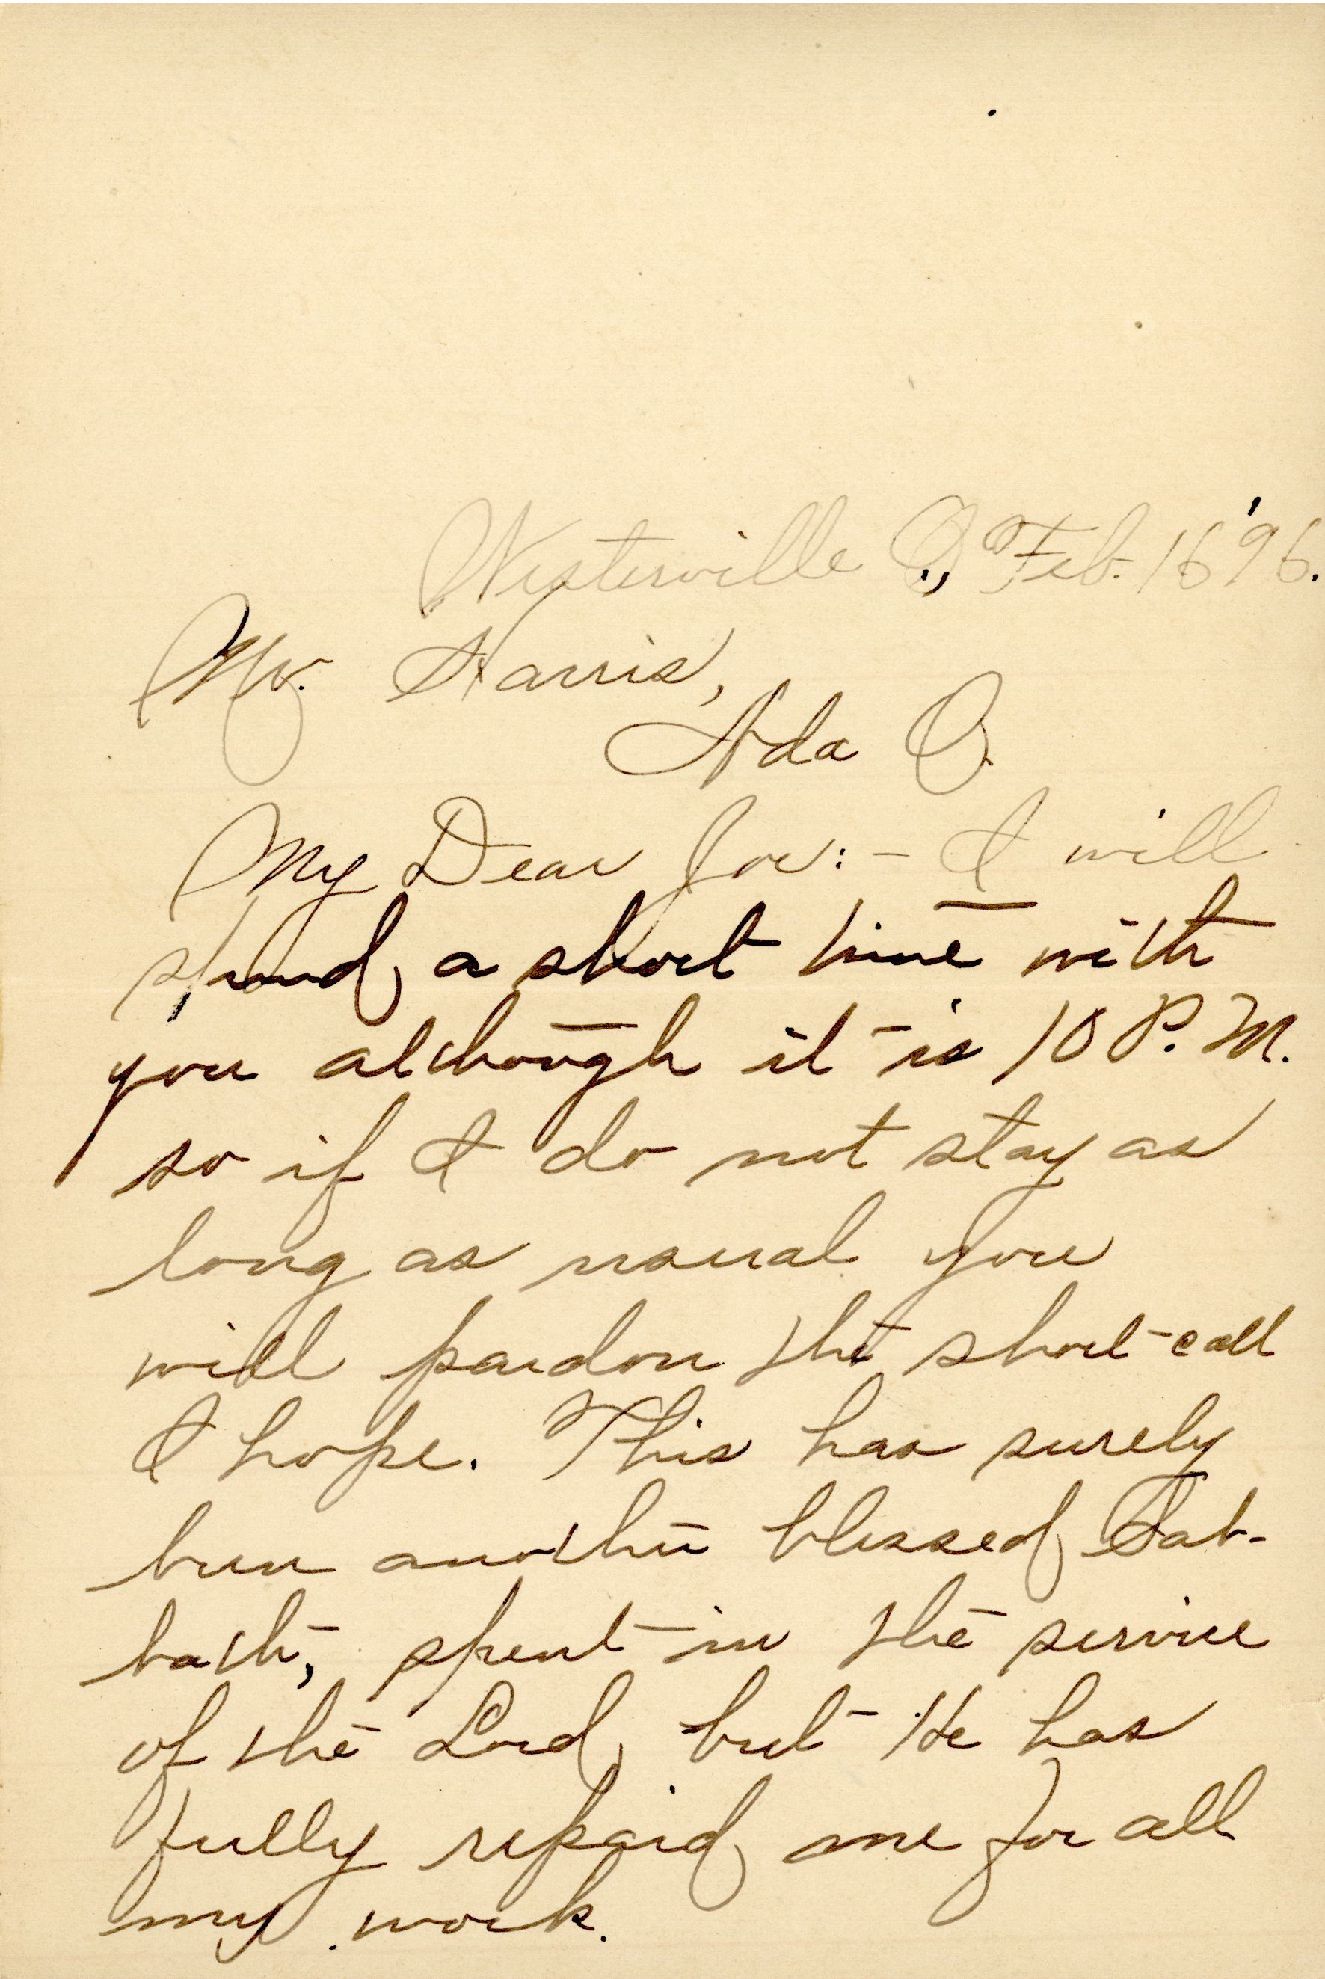 Westerville O., Feb. 16 '96.
Mr. Harris,
Ada O.
My Dear Joe:- I will
spend a short time with
you although it is 10 P.M.
so if I do not stay as
long as usual you
will pardon the short call
I hope. This has surely
been another blessed Sab-
bath, spent in the service
of the Lord, but He has
fully repaid me for all
my work.